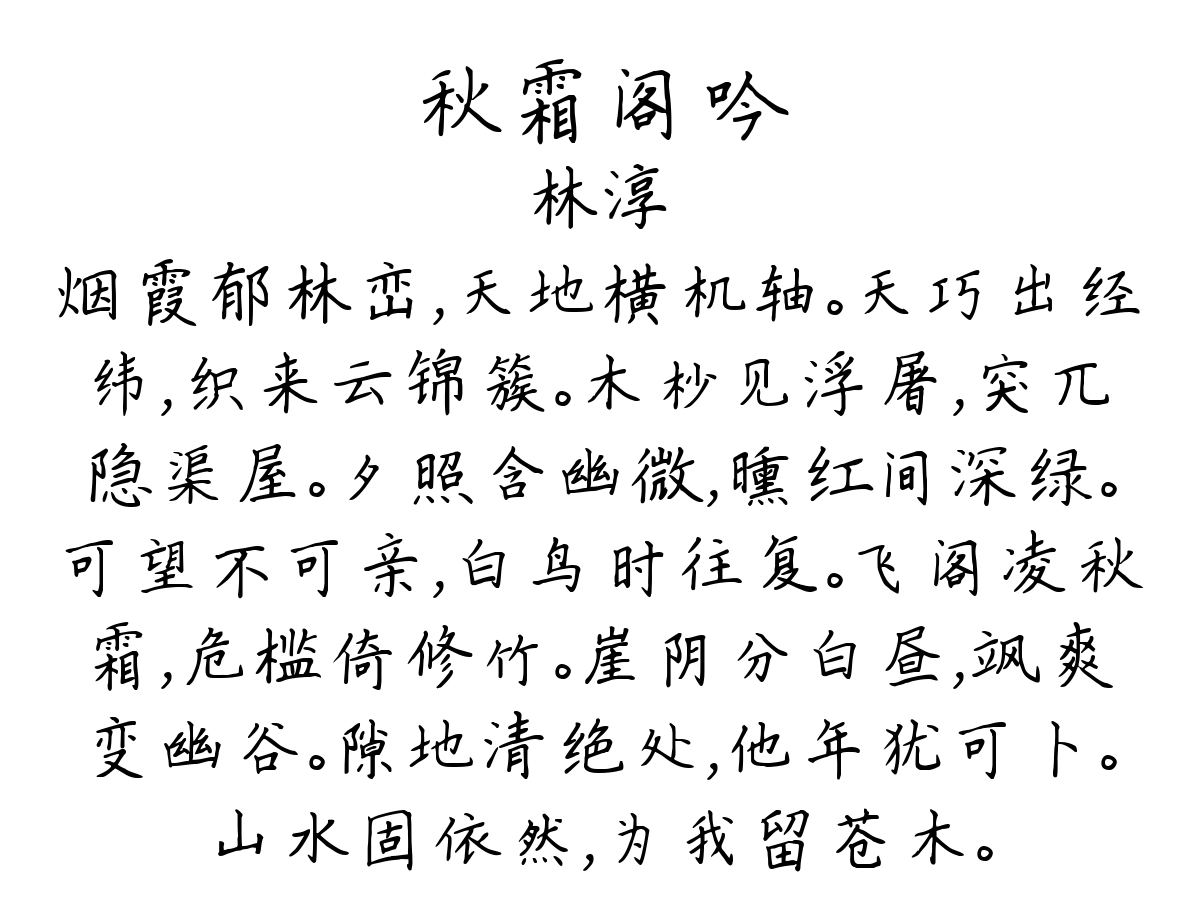 秋霜阁吟
林淳
烟霞郁林峦,天地横机轴。天巧出经
纬,织来云锦簇。木杪见浮屠,突兀
隐渠屋。夕照含幽微,曛红间深绿。
可望不可亲,白鸟时往复。飞阁凌秋
霜,危槛倚修竹。崖阴分白昼,飒爽
变幽谷。隙地清绝处,他年犹可卜。
山水固依然,为我留苍木。